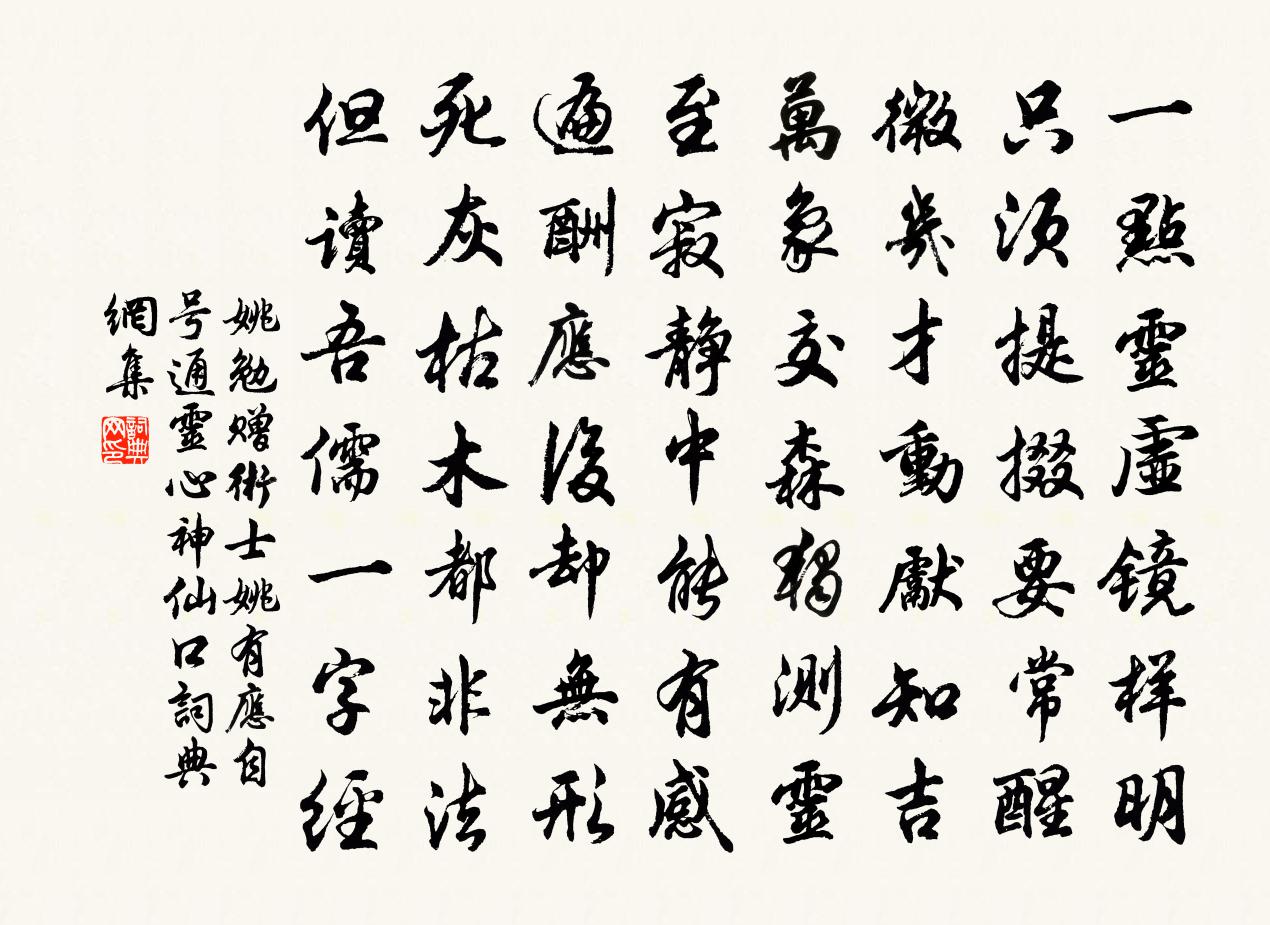 一點靈虛镜样明
只须提掇要常醒
微幾才動獻知吉
萬象交森獨測靈
至寂静中能有感
遍酬應後却無形
死灰枯木都非法
但讀吾儒一字經
姚勉赠術士姚有應自
号通靈心神仙口詞典
網集
詞典
网印